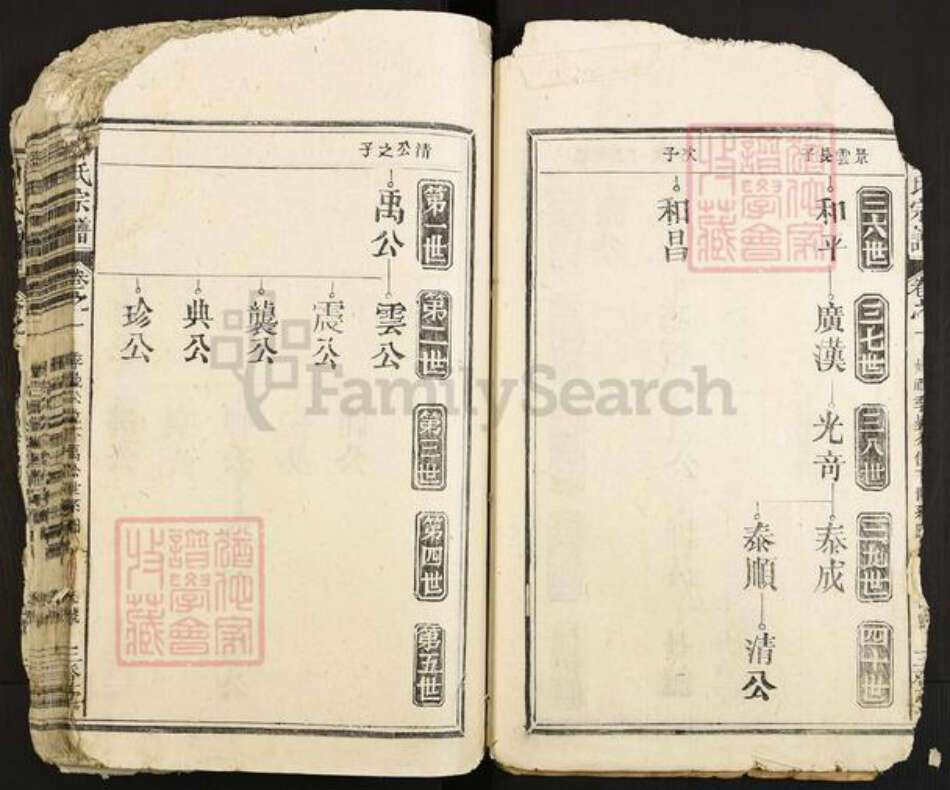 景雲長子
次子
三六世
和平
和昌
三七世
廣漢
三八世
光奇
三九世
泰成
泰順
四十世
清公
清公之子
第一世
禹公
第二世
雲公
震公
龔公
典公
珍公
第三世
第四世
第五世
氏宗譜
卷之一
譜學會
收藏
FamilySearch